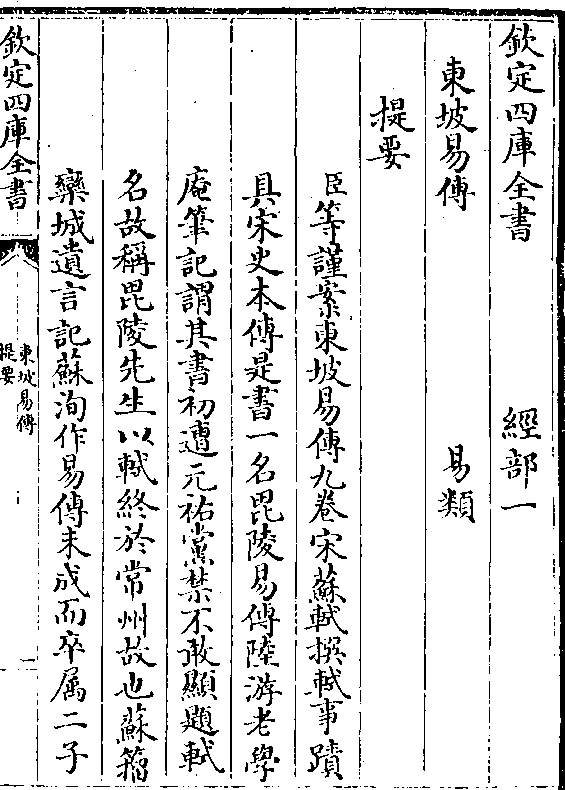 欽定四庫全書　經部一
東坡易傳　易類
提要
臣等謹案東坡易傳九卷宋蘇軾撰軾事蹟
具宋史本傳是書一名毘陵易傳陸游老學
庵筆記謂其書初遭元祐黨禁不敢顯題軾
名故稱毘陵先生以軾終於常州故也蘇籀
欒城遺言記蘇洵作易傳未成而卒属二子
欽定四庫全書
東坡易傳
提要
一